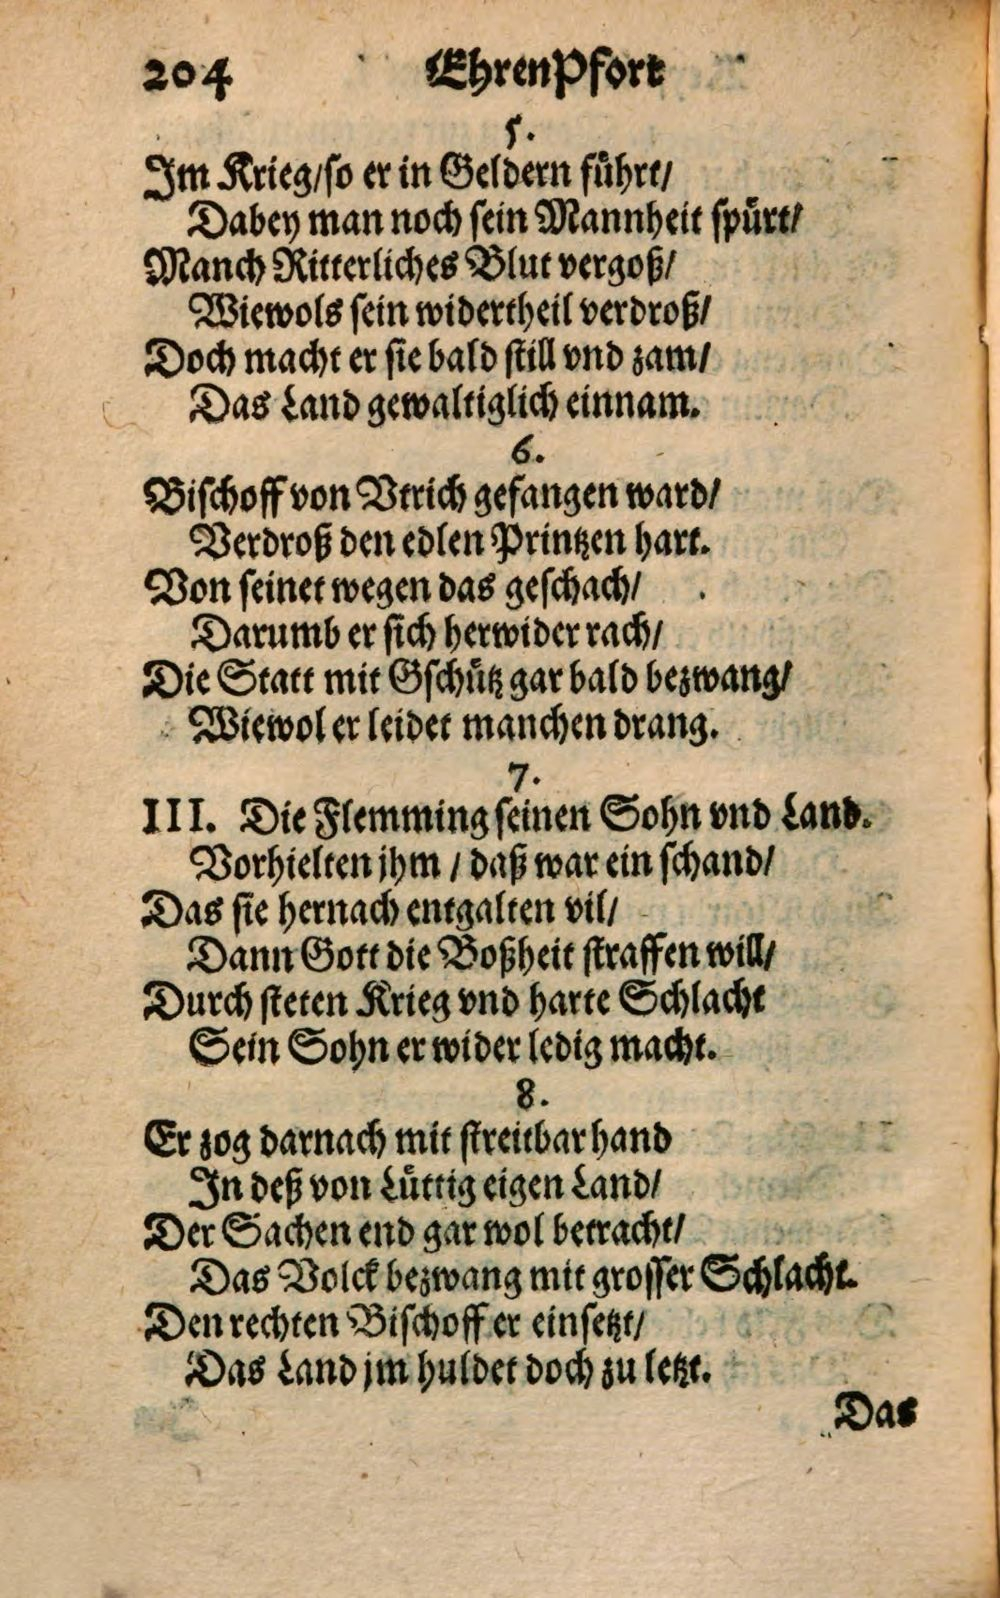 204 EhrenPfort
5.
Im Krieg/so er in Geldern führt/
Dabey man noch sein Mannheit spürt/
Manch Ritterliches Blut vergoß/
Wiewols sein widertheil verdroß/
Doch macht er sie bald still vnd zam/
Das Land gewaltiglich einnam.
6.
Bischoff von Vtrich gefangen ward/
Verdroß den edlen Printzen hart.
Von seinet wegen das geschach/
Darumb er sich herwider rach/
Die Statt mit Gschütz gar bald bezwang/
Wiewol er leidet manchen drang.
7.
III. Die Flemming seinen Sohn vnd Land.
Vorhielten jhm / daß war ein schand/
Das sie hernach entgalten vil/
Dann Gott die Boßheit straffen will/
Durch steten Krieg vnd harte Schlacht
Sein Sohn er wider ledig macht.
8.
Er zog darnach mit streitbar hand
In deß von Lüttig eigen Land/
Der Sachen end gar wol betracht/
Das Volck bezwang mit grosser Schlacht.
Den rechten Bischoff er einsetzt/
Das Land jm huldet doch zu letzt.
Das